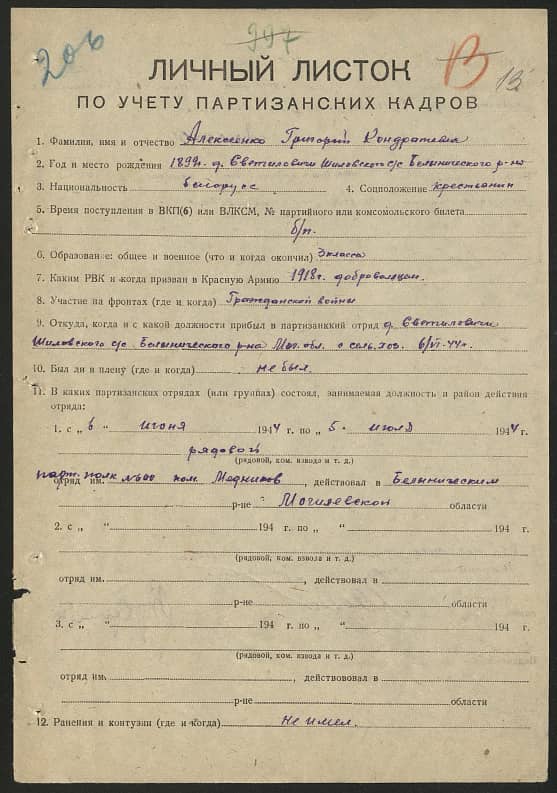 206
997
В
13
ЛИЧНЫЙ ЛИСТОК
ПО УЧЕТУ ПАРТИЗАНСКИХ КАДРОВ
1. Фамилия, имя и отчество Алексеенко Григорий Кондратевич
2. Год и место рождения 1899г. д. Светиловичи Шиловского с/с Белыничского р-на
3. Национальность белорус 4. Соцположение крестьянин
5. Время поступления в ВКП(б) или ВЛКСМ, № партийного или комсомольского билета
б/п.
6. Образование: общее и военное (что и когда окончил) 3 класса
7. Каким РВК и когда призван в Красную Армию 1918г. добровольцем.
8. Участие на фронтах (где и когда) Гражданской войны
9. Откуда, когда и с какой должности прибыл в партизанский отряд д. Светиловичи
Шиловского с/с Белыничского р-на Мог. обл. с сель.хоз. 6/VI-44г.
10. Был ли в плену (где и когда) не был.
11. В каких партизанских отрядах (или группах) состоял, занимаемая должность и район действия
отряда:
1. с „ 6 “ июня 1944 г. по „ 5 “ июля 1944 г.
рядовой
(рядовой, ком. взвода и т. д.)
отряд им. парт. полк №600 ком. Медников, действовал в Белыничском
р-не Могилевской области
2. с „ “ 194 г. по „ “ 194 г.
(рядовой, ком. взвода и т. д.)
отряд им. , действовал в
р-не области
3. с „ “ 194 г. по „ “ 194 г.
(рядовой, ком. взвода и т. д.)
отряд им. , действововал в
р-не области
12. Ранения и контузии (где и когда) не имел.
1